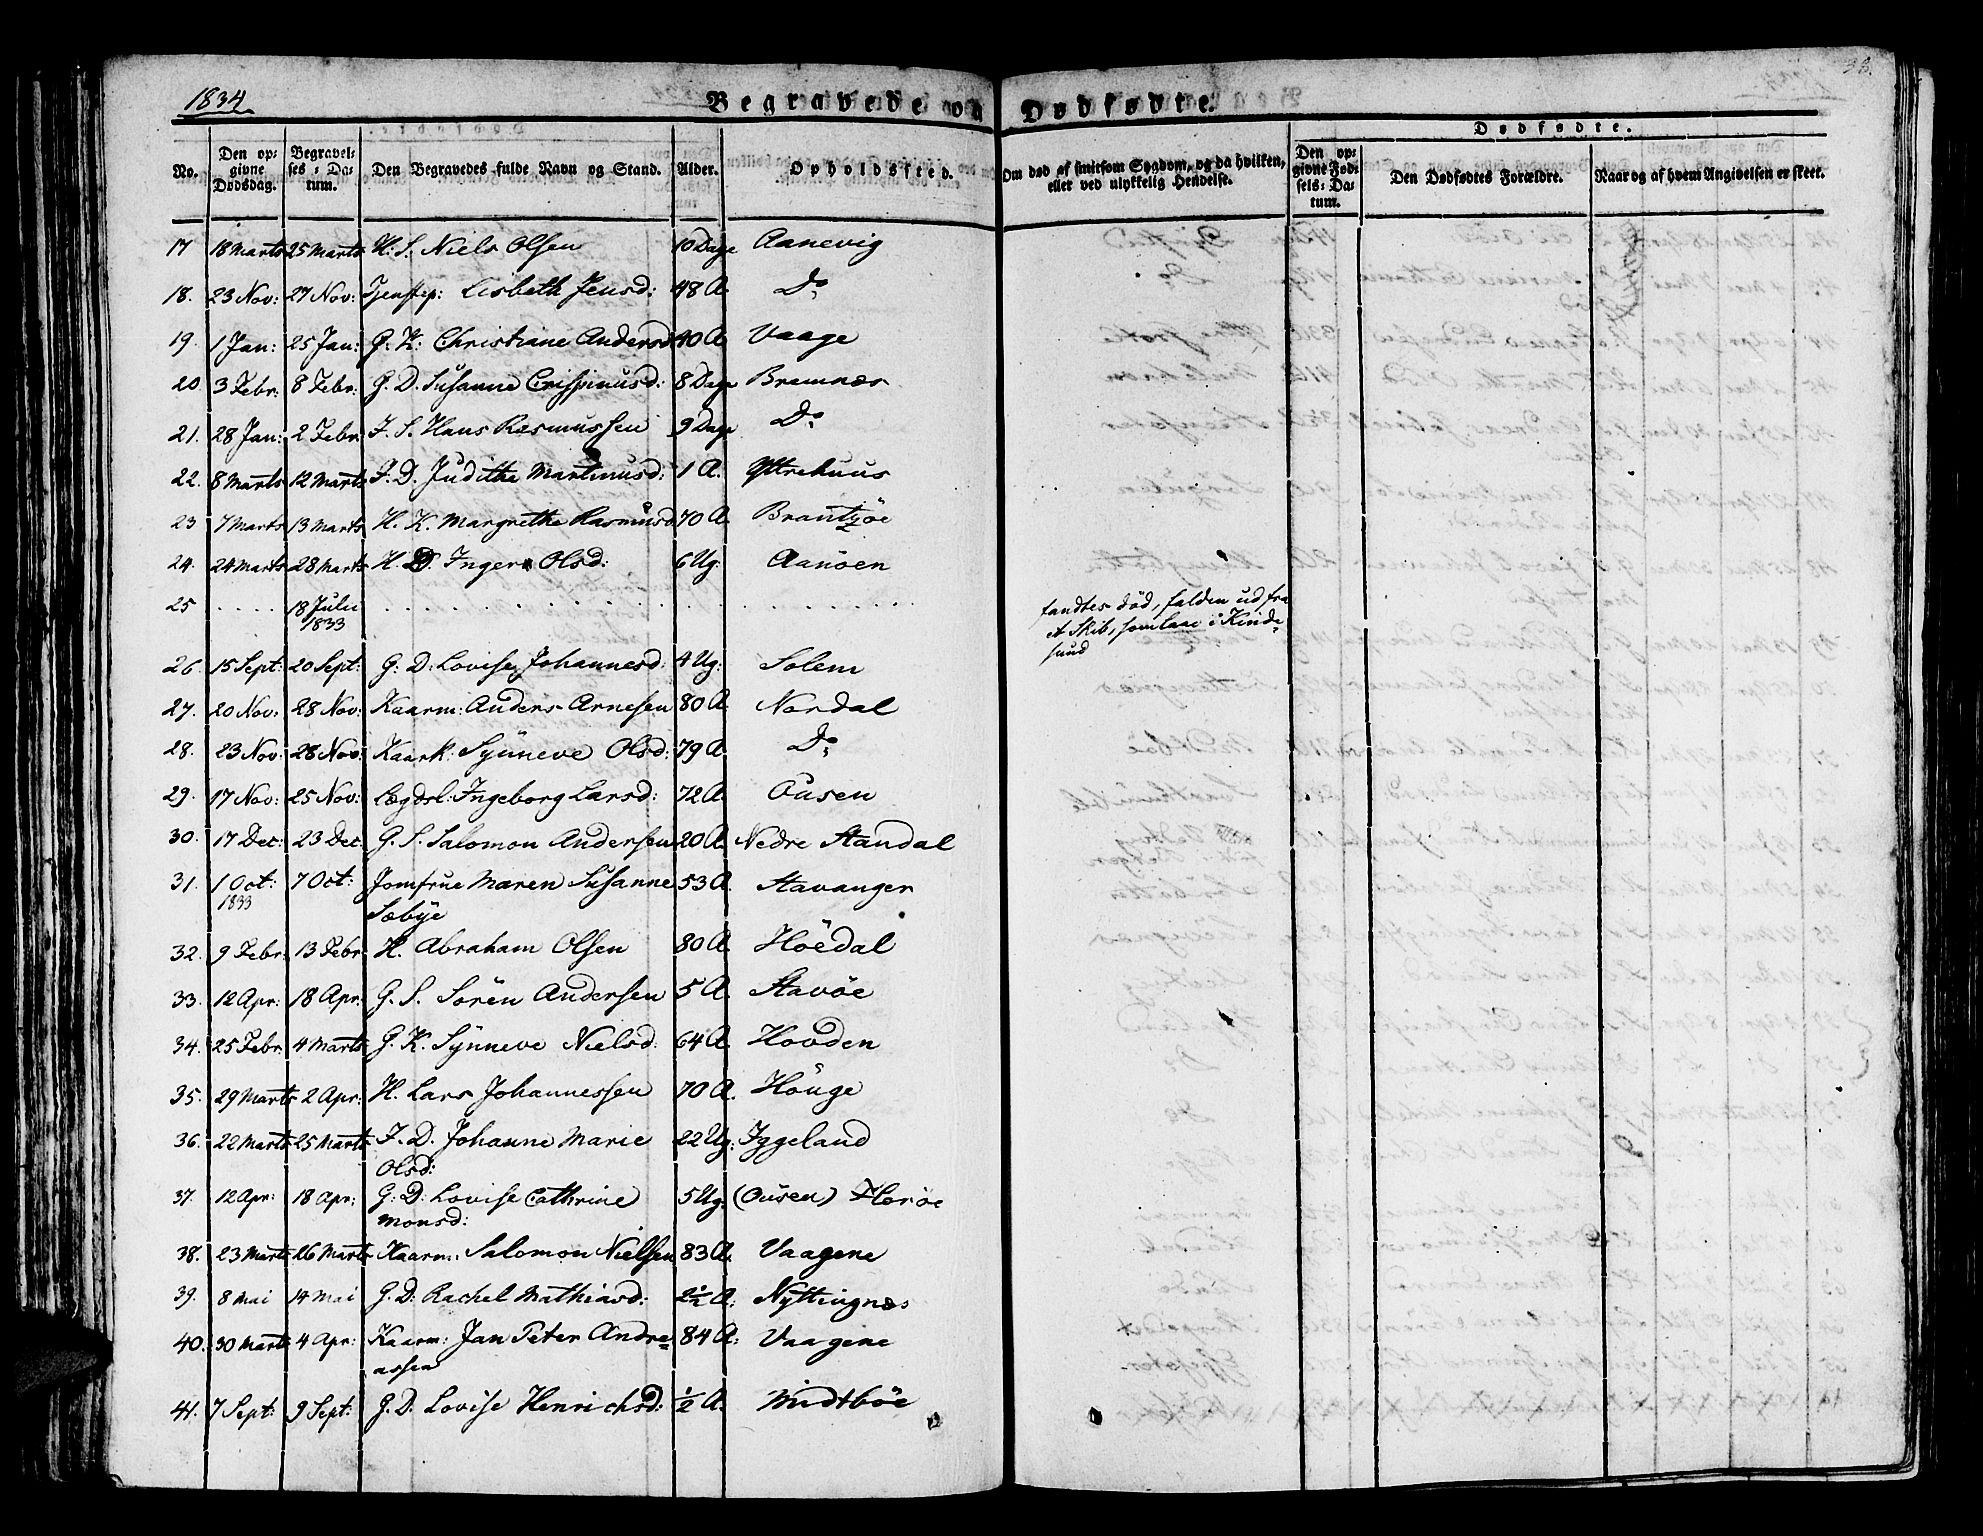 1834
Begravede og Dødfødte.
Dødfødte.
No. Den opgivne Dødsdag. Begravelses-Datum. Den Begravedes fulde Navn og Stand. Alder. Opholdssted. Om død af smitsom Sygdom, og da hvilken, eller ved ulykkelig Hendelse. Den opgivne Fødsels-Datum. Den Dødfødtes Forældre. Naar og af hvem Angivelsen er skeet.
17 18 Marts 25 Marts H. S. Niels Olsen 10 Dage Aanevig
18. 23 Nov: 27 Nov: Tjenstep: Lisbeth Jensd: 48 A. Do
19. 1 Jan: 25 Jan: G. K: Christiane Andersd 40 A Vaage
20. 3 Febr: 8 Febr: G. D. Susanne Crispinusd: 8 Dage Bremnæs
21. 28 Jan: 2 Febr J. S. Hans Rasmussen 9 Dage Do
22. 8 Marts 12 Marts J. D. Juditha Martinusd: 1 A. Yttrehuus
23 7 Marts 13 Marts H. K. Margrethe Rasmusd 70 A. Brantzøe
24. 24 Marts 28 Marts H. D. Inger Olsd: 6 Ug: Aanöen
25 . . . . 18 Julii 1833 . . . . . . . . . . . . fandtes död, falden ud fra
et Skib, som laae i Kinde=
sund
26. 15 Sept: 20 Sept: G: D: Lovise Johannesd: 4 Ug: Solem
27. 20 Nov: 28 Nov: Kaarm: Anders Arnesen 80 A. Nordal
28. 23 Nov: 28 Nov: Kaark: Synneve Olsd: 79 A. Do
29. 17 Nov: 25 Nov: Lægdsl: Ingeborg Larsd: 72 A. Ousen
30. 17 Dec: 23 Dec: G. S. Salomon Andersen 20 A. Nedre Standal
31. 1 Oct: 1833 7 Oct: Jomfrue Maren Susanne 53 A. Stavanger
Sæbye
32. 9 Febr: 13 Febr H. Abraham Olsen 80 A. Höedal
33. 12 Apr: 18 Apr: G. S. Sören Andersen 5 A. Stavöe
34. 25 Febr 4 Marts G. K. Synneve Nielsd: 64 A. Hovden
35. 29 Marts 2 Apr: H. Lars Johannessen 70 A. Höuge
36. 22 Marts 25 Marts J. D. Johanne Marie 22 Ug: Iggeland
Olsd:
37. 12 Apr: 18 Apr: G: D: Lovise Cathrine 5 Ug: (Ousen) Horöe
Monsd:
38. 23 Marts 26 Marts Kaarm: Salomon Nielsen 83 A. Vaagene
39. 8 Mai 14 Mai G. D: Rachel Mathiasd: 2 1/2 A: Nyttingnæs
40. 30 Marts 4 Apr: Kaarm: Jan Peter Andre= 84 A: Vaagene
assen
41. 7 Sept: 9 Sept: G. D. Lovise Henrichsd: 1/2 A. Midtböe